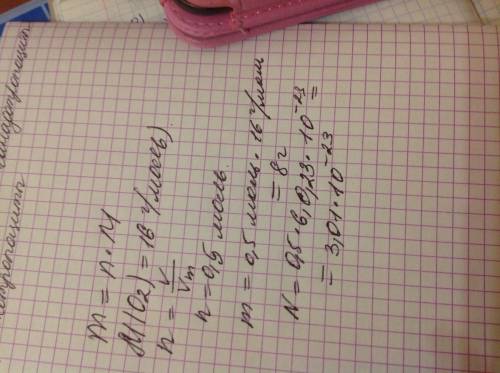 m = n · M
M(O₂) = 16 г/моль)
n = V/Vm
n = 0,5 моль.
m = 0,5 моль · 16 г/моль
= 8г
N = 0,5 · 6,0,23 · 10⁻²³ =
= 3,01 · 10⁻²³